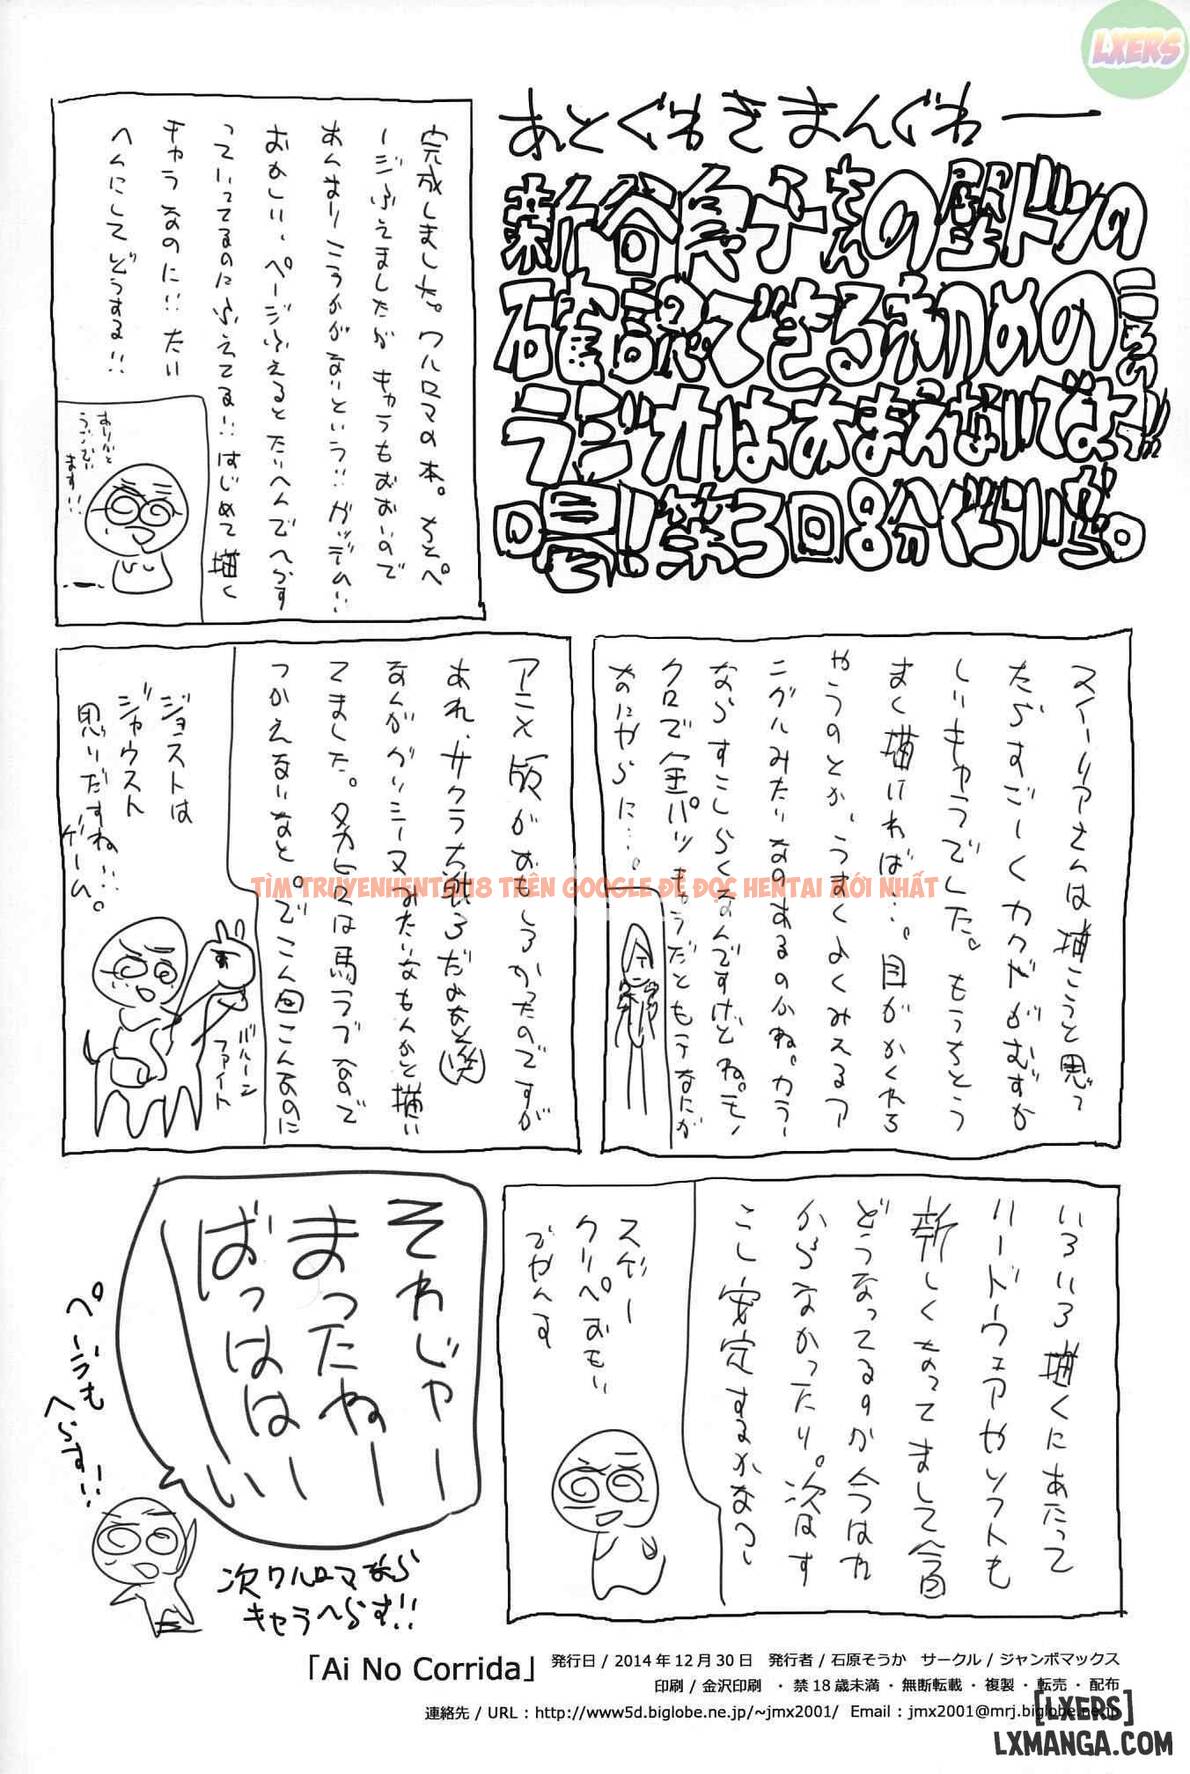 LXERS
あとぐわきまんぐわー
新谷良子さんの壁ドンの
確認できる初めの
ラジオはおまえないでよ!!
第3回8分ぐらい
完成しました。ワルロマの本。ちとペ
ージふえましたが キャラもおおいので
あんまりこうかがないという!! ガッデム!!
おかしい、ページふえるとたいへんでへらす
っていってるのにふえてる!! はじめて描く
キャラなのに!! たい
へんにしてどうする!!
ありがと
うございます!!
スイーリアさんは描こうと思っ
たらすごーくカクがむずか
しいキャラでした。もうちとう
まく描ければ…。目がかくれる
やうのとか、うすくよくみえるア
ングルみたいなのあるのかね。カラー
ならすこしらくなんですけどね。モノ
クロで金パツもうだともうなにが
なにやらに…。
アニメ版がおもしろかったのですが
あれ、サクラ大戦ろだよなと(笑)
なんかグリシーヌみたいなもんかと描い
てました。タカヒロは馬ラブなので
つかえないなと。でこん回こんなのに
ジョストは
ジャウスト
思いだすね…
ゲーム。
バルーン
ファイト
TÌM TRUYENHENTAI18 TRÊN GOOGLE ĐỂ ĐỌC HENTAI MỚI NHẤT
いろいろ描くにあたって
ハードウェアやソフトも
新しくなってまして今回
どうなってるすか今はわ
からなかったり。次はす
こし安定するかなっ
スゲー
クリペおもい
でやんす
それじゃー
まったねー
ばっはは〜い
ページも
へらす!!
次ワルロマなら
キャラへらす!!
「Ai No Corrida」 発行日 / 2014年12月30日 発行者 / 石原そうか サークル / ジャンボマックス
印刷 / 金沢印刷 ・禁18歳未満・無断転載・複製・転売・配布
連絡先 / URL : http://www5d.biglobe.ne.jp/~jmx2001/ Email : jmx2001@mrj.biglobe.ne.jp
[LXERS]
LXMANGA.COM